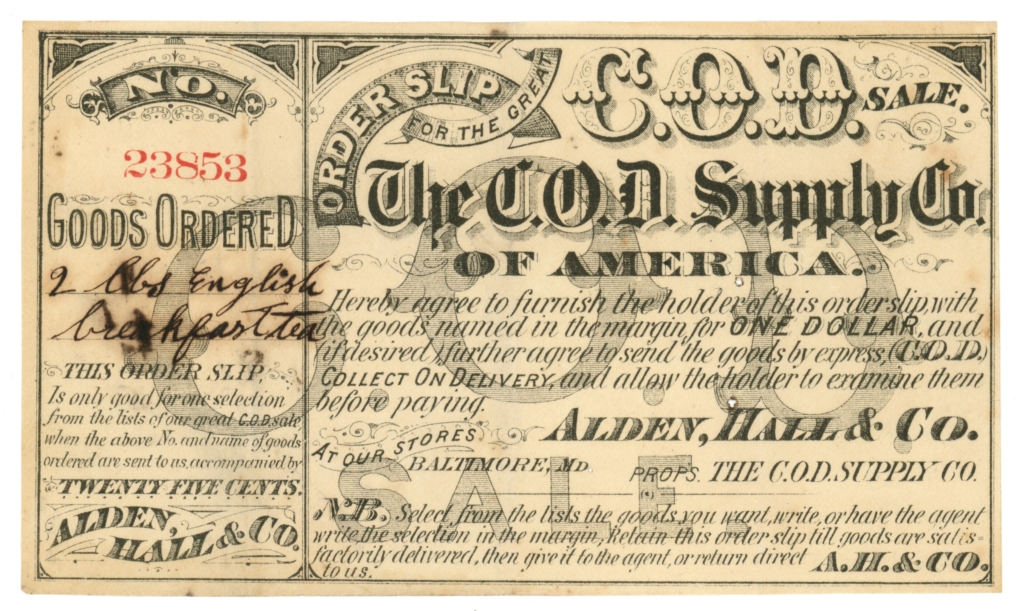 NO.
23853
GOODS ORDERED
2 lbs English
breakfast tea
THIS ORDER SLIP,
Is only good for one selection
from the lists of our great C.O.D. sale,
when the above No. and name of goods
ordered are sent to us, accompanied by
TWENTY FIVE CENTS.
ALDEN,
HALL & CO.
ORDER SLIP
FOR THE GREAT
C.O.D. SALE.
The C.O.D. Supply Co.
OF AMERICA.
Hereby agree to furnish the holder of this order slip, with
the goods named in the margin, for ONE DOLLAR, and
(if desired), further agree to send the goods by express, (C.O.D.)
COLLECT ON DELIVERY, and allow the holder to examine them
before paying.
ALDEN, HALL & CO.
AT OUR STORES
BALTIMORE, MD. PROPS. THE C.O.D. SUPPLY CO.
N.B. Select from the lists the goods you want, write, or have the agent
write the selection in the margin, Retain this order slip till goods are satis-
factorily delivered, then give it to the agent, or return direct
to us. A.H. & CO.
C.O.D.
SALE